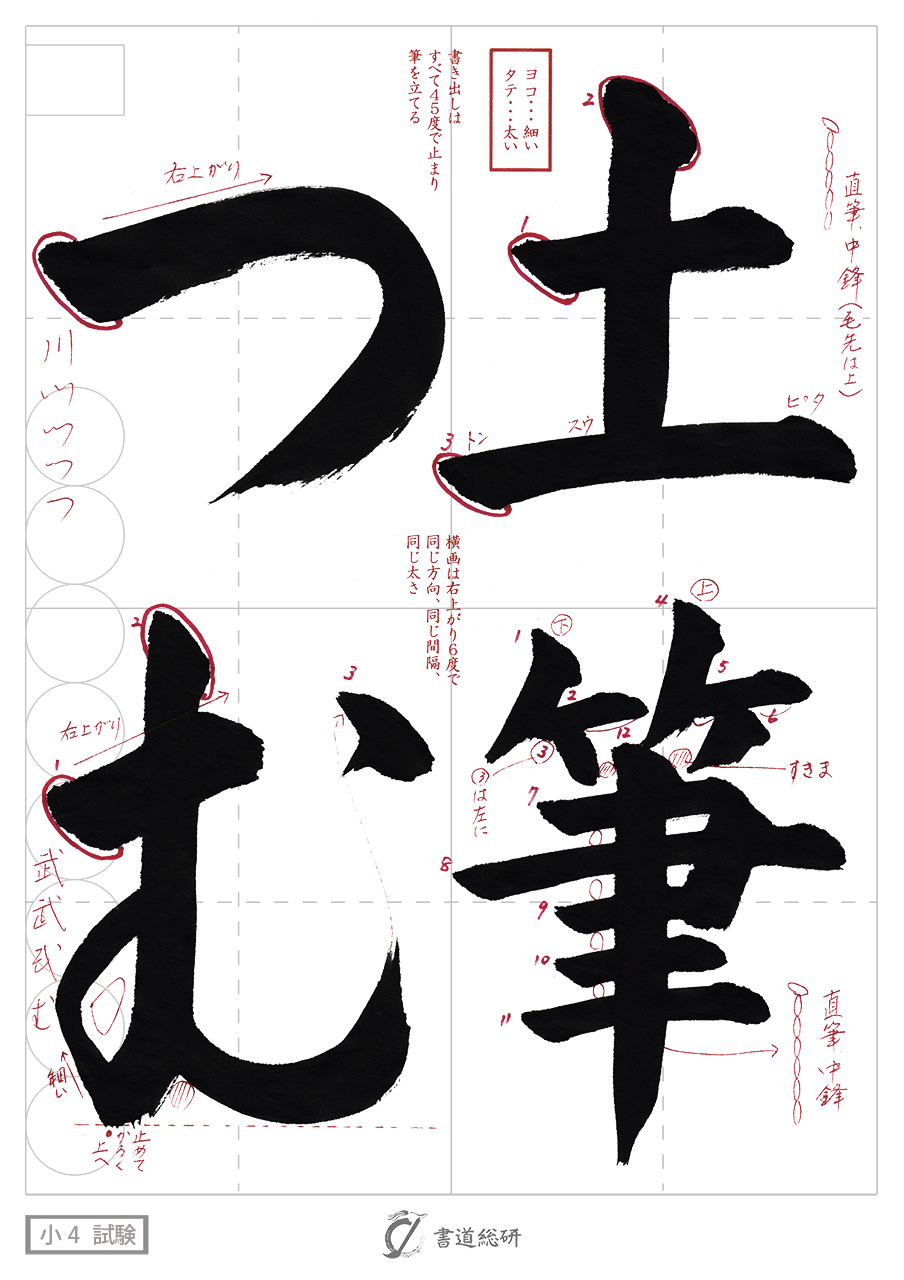 土筆
つむ
ヨコ・・・細い
タテ・・・太い
書き出しは
すべて45度で止まり
筆を立てる
横画は右上がり6度で
同じ方向、同じ間隔、
同じ太さ
直筆、中鋒(毛先は上)
2
1
3
トン
スウ
ピタ
右上がり
川
つ
4
上
1
下
5
2
6
12
3
すきま
③は左に
7
8
9
10
11
直筆中鋒
2
3
右上がり
1
武
武
武
む
細い
止めて
かるく
上へ
小4 試験
書道総研